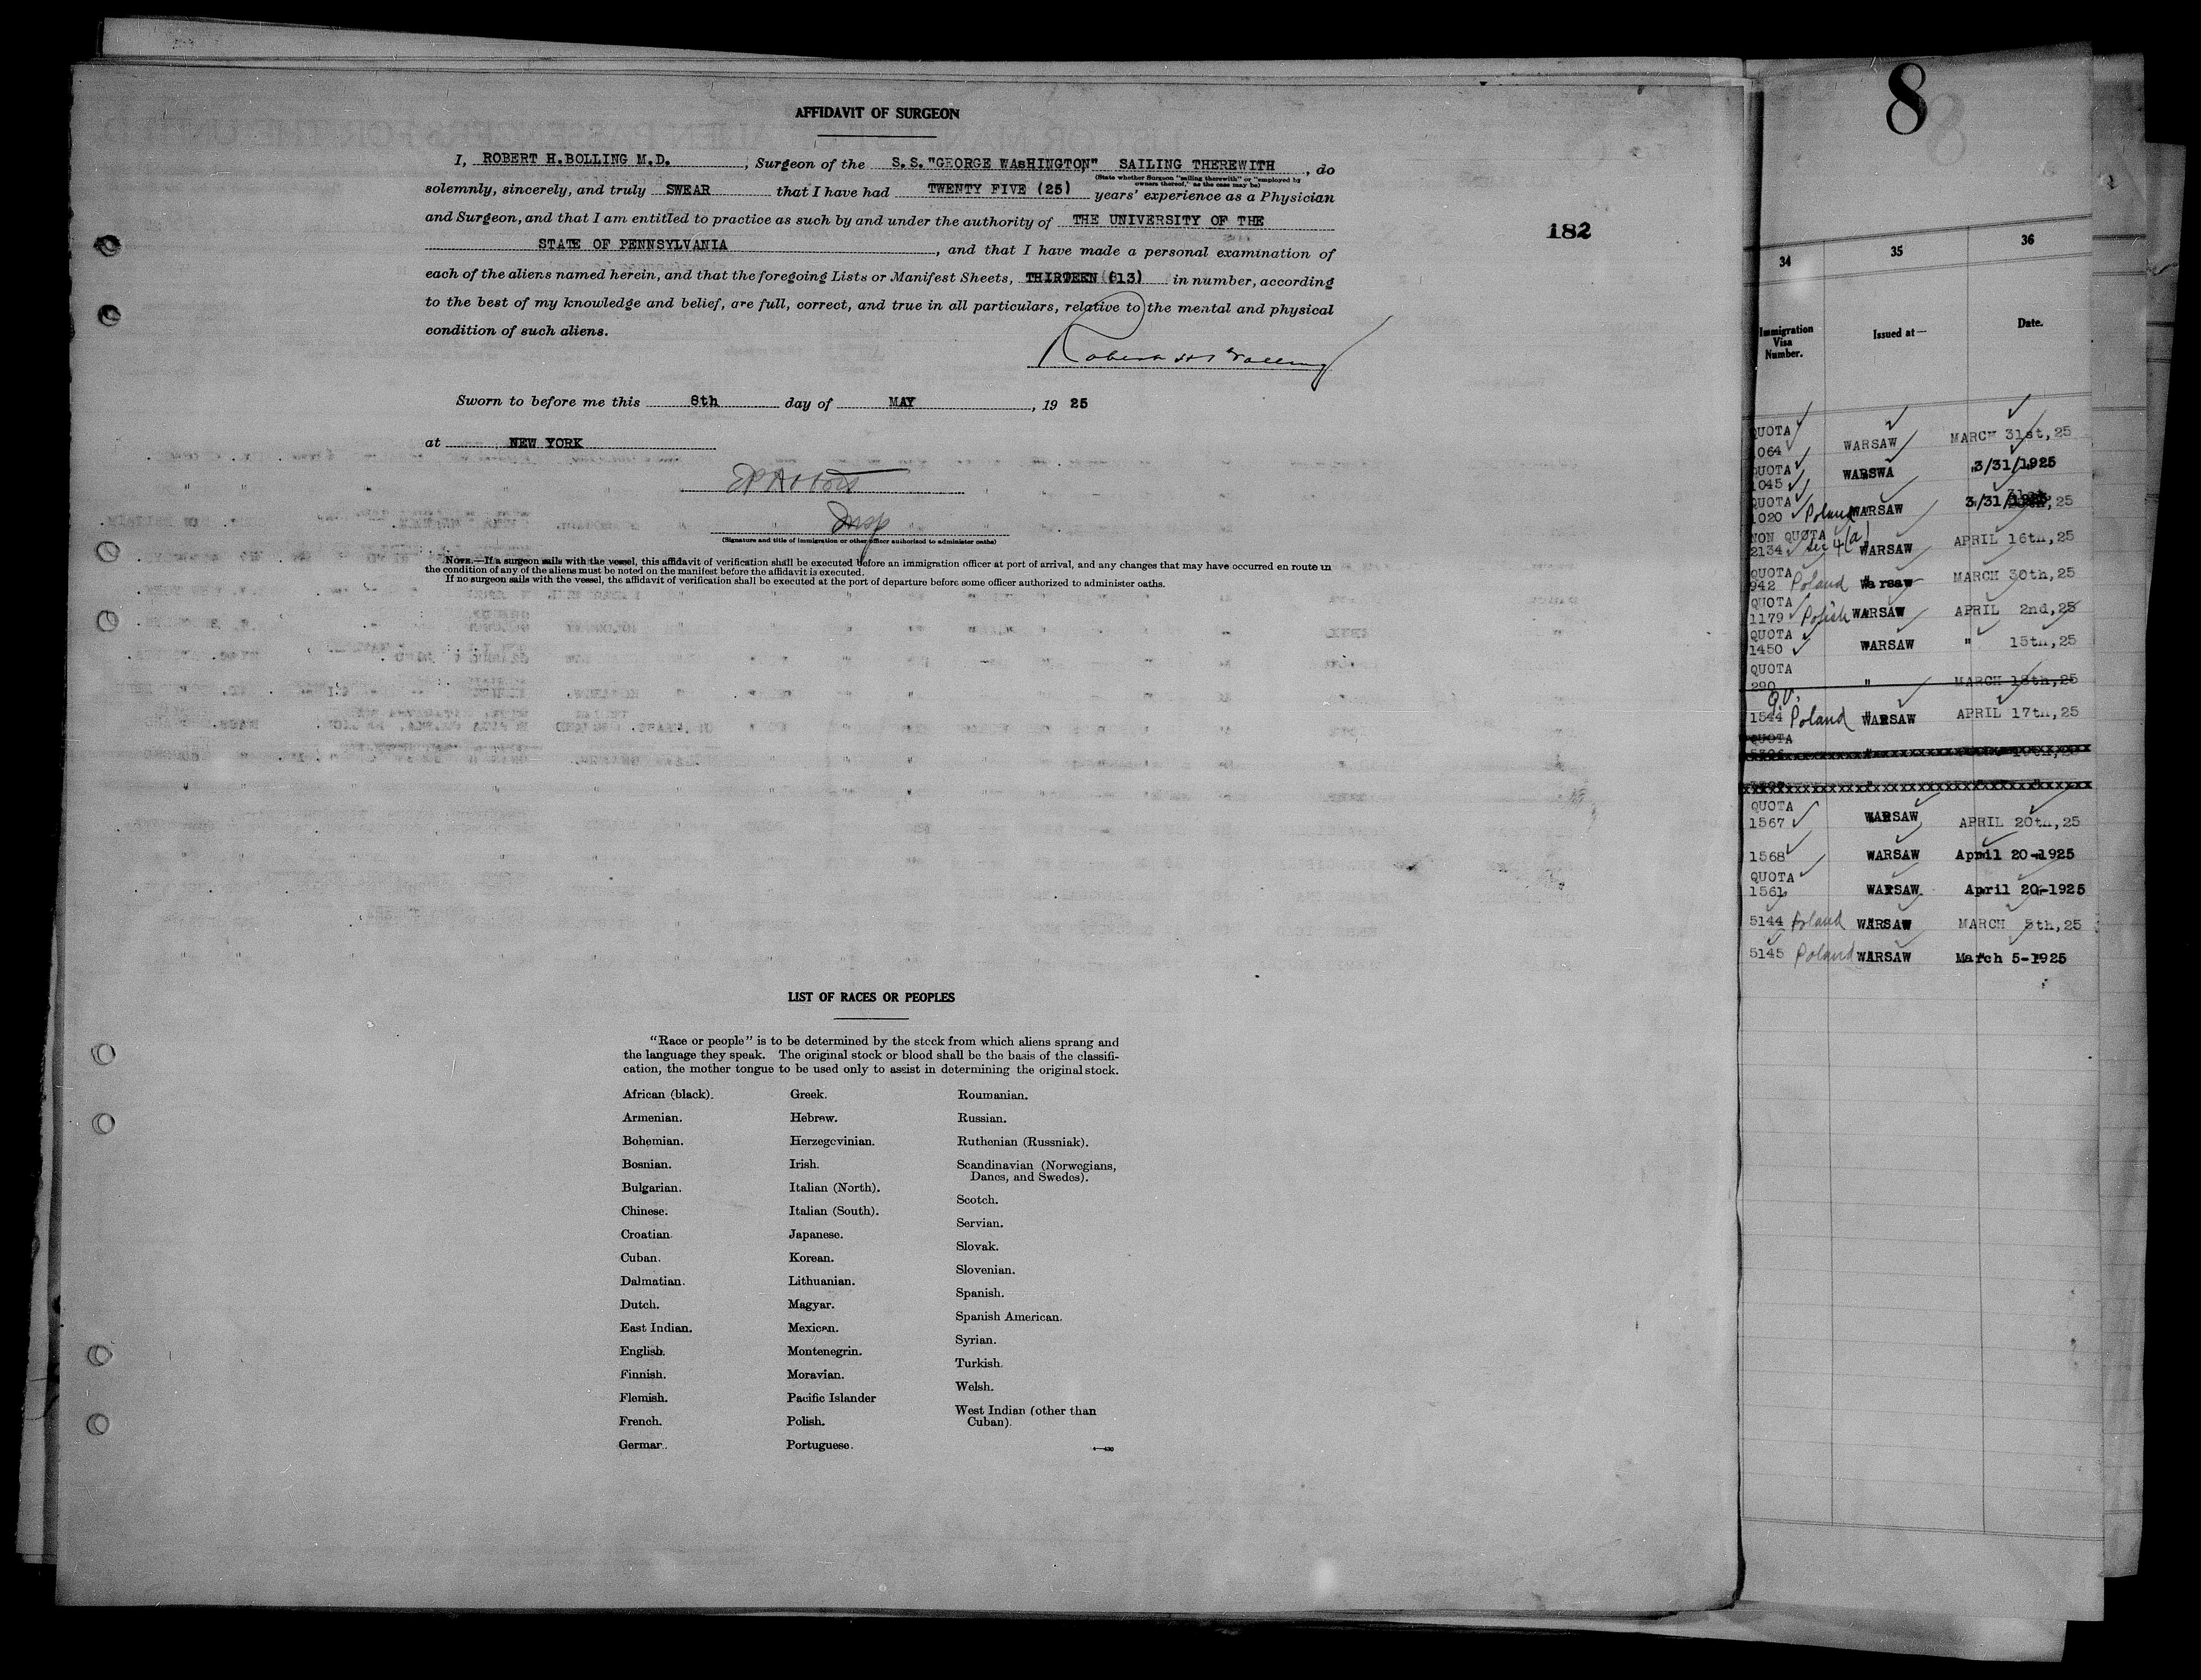 AFFIDAVIT OF SURGEON
I, ROBERT H.BOLLING M.D. , Surgeon of the S.S."GEORGE WAsHINGTON," SAILING THEREWITH , do
(State whether Surgeon "sailing therewith" or "employed by
owners thereof," as the case may be)
solemnly, sincerely, and truly SWEAR that I have had TWENTY FIVE (25) years' experience as a Physician
and Surgeon, and that I am entitled to practice as such by and under the authority of THE UNIVERSITY OF THE
STATE OF PENNSYLVANIA , and that I have made a personal examination of
each of the aliens named herein, and that the foregoing Lists or Manifest Sheets, THIRTEEN (13) in number, according
to the best of my knowledge and belief, are full, correct, and true in all particulars, relative to the mental and physical
condition of such aliens.
Robert H Bolling
Sworn to before me this 8th day of MAY , 19 25
at NEW YORK
Insp
(Signature and title of immigration or other officer authorized to administer oaths)
NOTE.—If a surgeon sails with the vessel, this affidavit of verification shall be executed before an immigration officer at port of arrival, and any changes that may have occurred en route in
the condition of any of the aliens must be noted on the manifest before the affidavit is executed.
If no surgeon sails with the vessel, the affidavit of verification shall be executed at the port of departure before some officer authorized to administer oaths.
182
LIST OF RACES OR PEOPLES
"Race or people" is to be determined by the stock from which aliens sprang and
the language they speak. The original stock or blood shall be the basis of the classifi-
cation, the mother tongue to be used only to assist in determining the original stock.
African (black).
Armenian.
Bohemian.
Bosnian.
Bulgarian.
Chinese.
Croatian.
Cuban.
Dalmatian.
Dutch.
East Indian.
English.
Finnish.
Flemish.
French.
German.
Greek.
Hebrew.
Herzegovinian.
Irish.
Italian (North).
Italian (South).
Japanese.
Korean.
Lithuanian.
Magyar.
Mexican.
Montenegrin.
Moravian.
Pacific Islander
Polish.
Portuguese.
Roumanian.
Russian.
Ruthenian (Russniak).
Scandinavian (Norwegians,
Danes, and Swedes).
Scotch.
Servian.
Slovak.
Slovenian.
Spanish.
Spanish American.
Syrian.
Turkish.
Welsh.
West Indian (other than
Cuban).
8
34 35 36
Immigration
Visa
Number.
Issued at—
Date.
QUOTA
1064 WARSAW MARCH 31st,25
QUOTA
1045 WARSWA 3/31/1925
QUOTA
1020 Poland WARSAW 3/31/1925
NON QUOTA
2134 Sec 4(a) WARSAW APRIL 16th,25
QUOTA
942 Poland Warsaw MARCH 30th,25
QUOTA
1179 Polish WARSAW APRIL 2nd,25
QUOTA
1450 WARSAW " 15th,25
QUOTA
290 " MARCH 18th,25
Q.V.
1544 Poland WARSAW APRIL 17th,25
QUOTA
QUOTA
1567 WARSAW APRIL 20th,25
1568 WARSAW April 20-1925
QUOTA
1561 WARSAW April 20-1925
5144 Poland WARSAW MARCH 5th,25
5145 Poland WARSAW March 5-1925